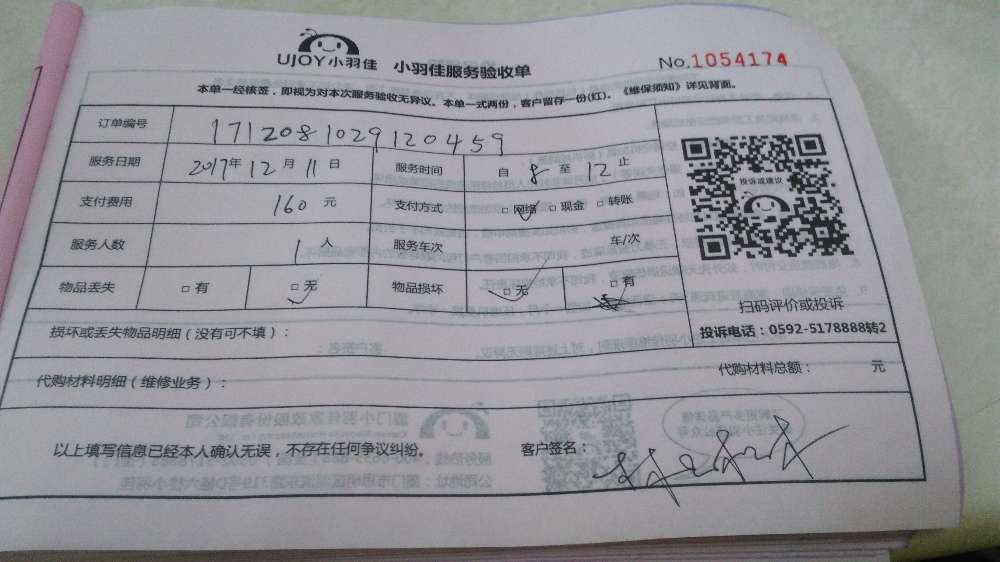 UJOY小羽佳 小羽佳服务验收单 No.1054174
本单一经核签，即视为对本次服务验收无异议。本单一式两份，客户留存一份(红)。《维保须知》详见背面。
订单编号 1712081029120459
服务日期 2017年12月11日 服务时间 自8至12止
支付费用 160元 支付方式 □网络 □现金 □转账
服务人数 1人 服务车次 车/次
物品丢失 □有 □无 物品损坏 □无 □有
投诉或建议
扫码评价或投诉
投诉电话：0592-5178888转2
损坏或丢失物品明细（没有可不填）：
代购材料明细（维修业务）： 代购材料总额： 元
以上填写信息已经本人确认无误，不存在任何争议纠纷。 客户签名：